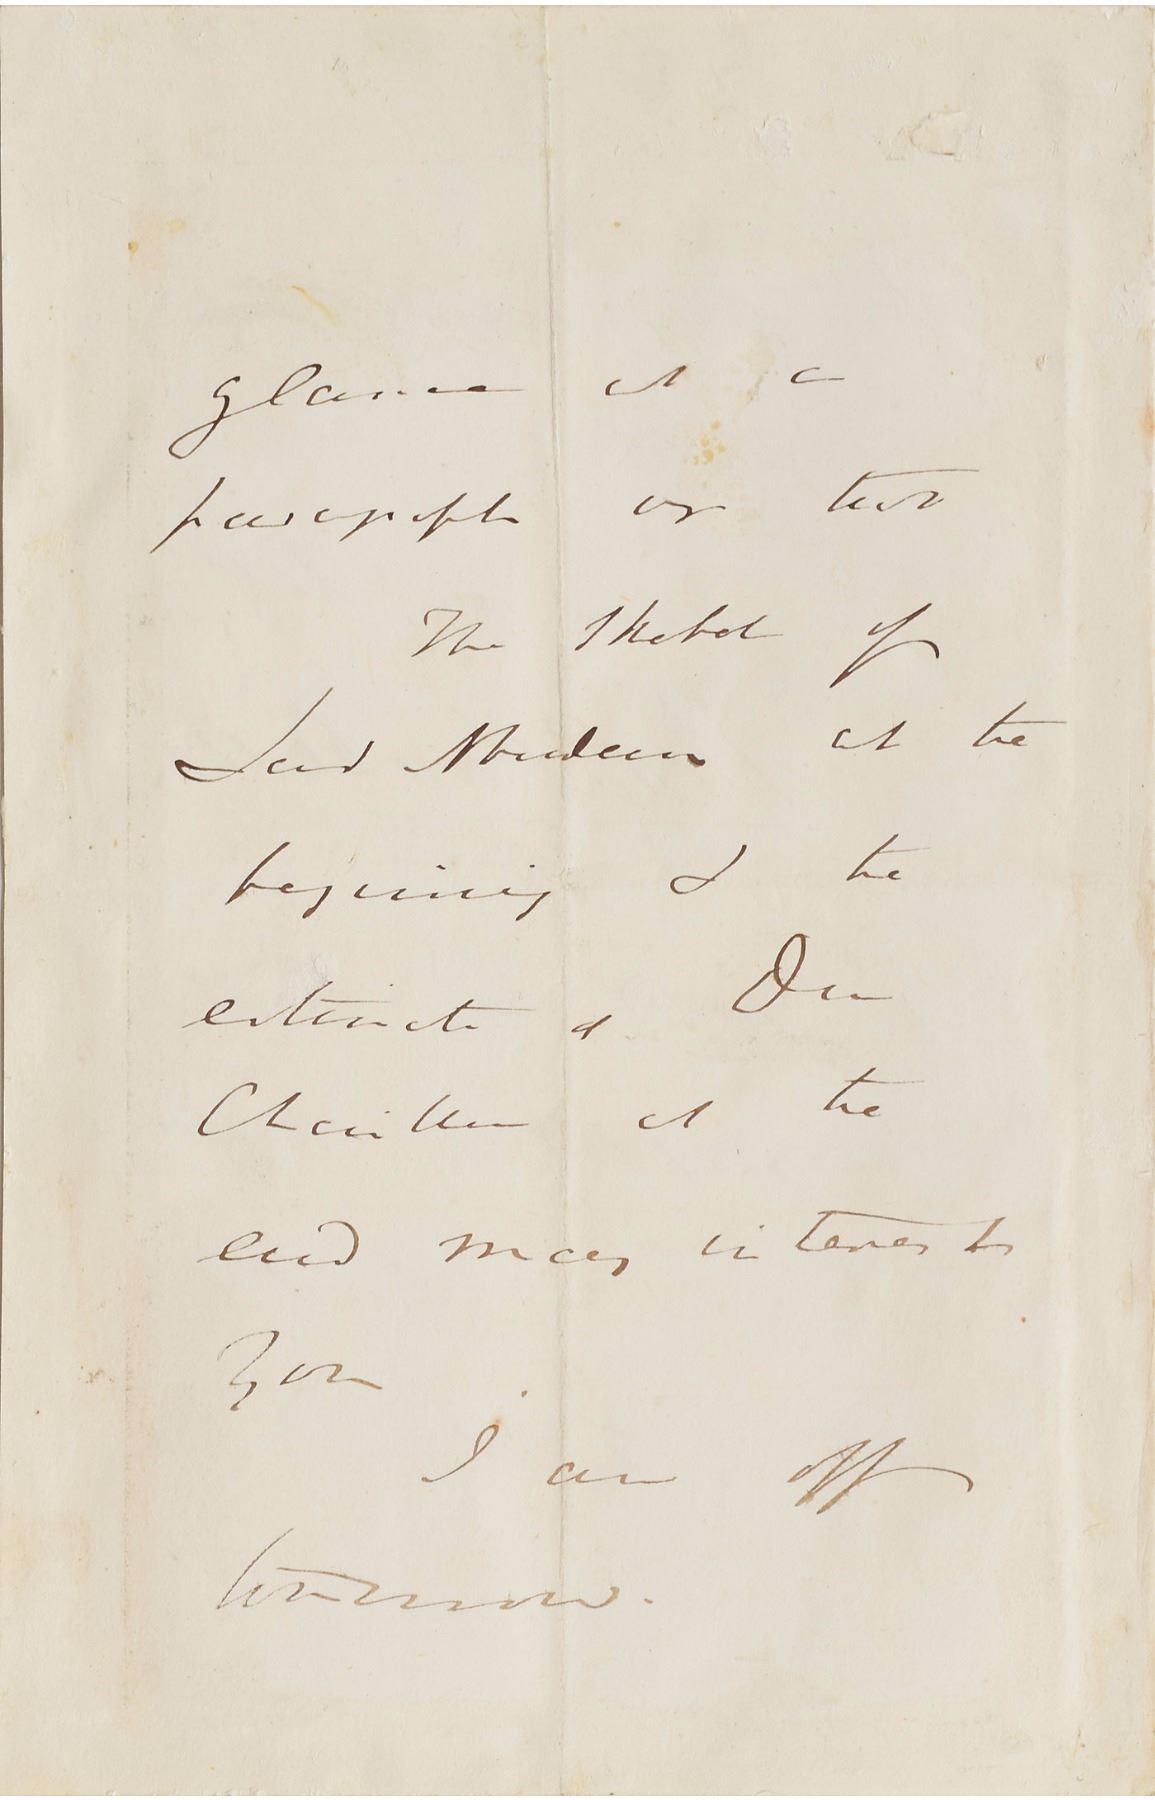 glance at a
paragraph or two
The Sketch of
Lord Aberdeen at the
beginning & the
estimate of Dean
at the
end may interest
you
I am off
tomorrow.